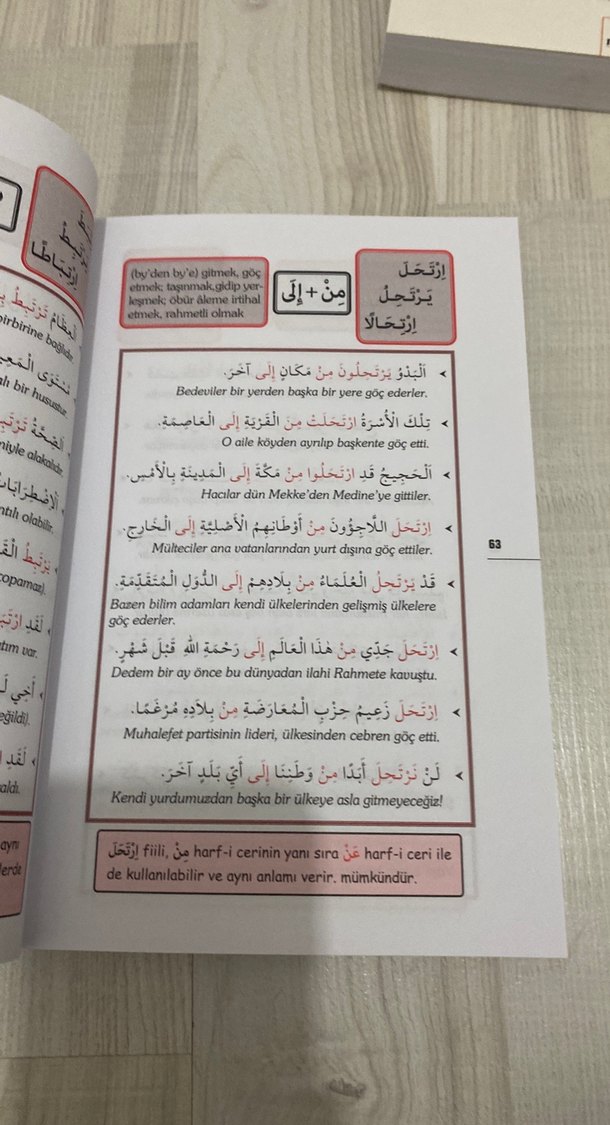 اِرْتَحَلَ
يَرْتَحِلُ
اِرْتِحَالًا
مِنْ + إِلَى
(by'den by'e) gitmek, göç
etmek; taşınmak,gidip yer-
leşmek; öbür âleme irtihal
etmek, rahmetli olmak
اَلْبَدْوُ يَرْتَحِلُونَ مِنْ مَكَانٍ إِلَى آخَرَ.
Bedeviler bir yerden başka bir yere göç ederler.
تِلْكَ الْأُسْرَةُ ارْتَحَلَتْ مِنَ الْقَرْيَةِ إِلَى الْعَاصِمَةِ.
O aile köyden ayrılıp başkente göç etti.
اَلْحَجِيجُ قَدِ ارْتَحَلُوا مِنْ مَكَّةَ إِلَى الْمَدِينَةِ بِالْأَمْسِ.
Hacılar dün Mekke'den Medine'ye gittiler.
اِرْتَحَلَ اللَّاجِؤُونَ مِنْ أَوْطَانِهِمُ الْأَصْلِيَّةِ إِلَى الْخَارِجِ.
Mülteciler ana vatanlarından yurt dışına göç ettiler.
قَدْ يَرْتَحِلُ الْعُلَمَاءُ مِنْ بِلَادِهِمْ إِلَى الدُّوَلِ الْمُتَقَدِّمَةِ.
Bazen bilim adamları kendi ülkelerinden gelişmiş ülkelere
göç ederler.
اِرْتَحَلَ جَدِّي مِنْ هٰذَا الْعَالَمِ إِلَى رَحْمَةِ اللهِ قَبْلَ شَهْرٍ.
Dedem bir ay önce bu dünyadan ilahi Rahmete kavuştu.
اِرْتَحَلَ زَعِيمُ حِزْبِ الْمُعَارَضَةِ مِنْ بِلَادِهِ مُرْغَمًا.
Muhalefet partisinin lideri, ülkesinden cebren göç etti.
لَنْ نَرْتَحِلَ أَبَدًا مِنْ وَطَنِنَا إِلَى أَيِّ بَلَدٍ آخَرَ.
Kendi yurdumuzdan başka bir ülkeye asla gitmeyeceğiz!
اِرْتَحَلَ fiili, مِنْ harf-i cerinin yanı sıra عَنْ harf-i ceri ile
de kullanılabilir ve aynı anlamı verir. mümkündür.
63